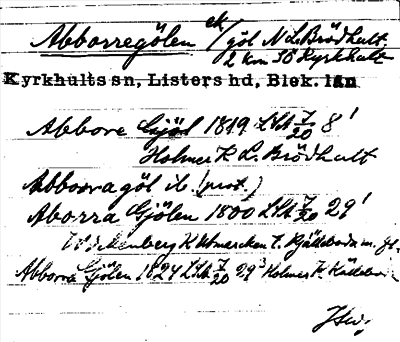 Abborregölen ek/göl N L. Brödhult
2 km SO Kyrkhult
Kyrkhults sn, Listers hd, Blek. län
Abbore Gjöl 1819 LSA 7/20 8'
Holmer K L. Brödhult
Abborragöl ib. (prot.)
Aborra Gjölen 1800 LSA 7/20 29'
K Utmarcken t.
Abborra Gjölen 1824 LSA 7/20 29³ Holmer K